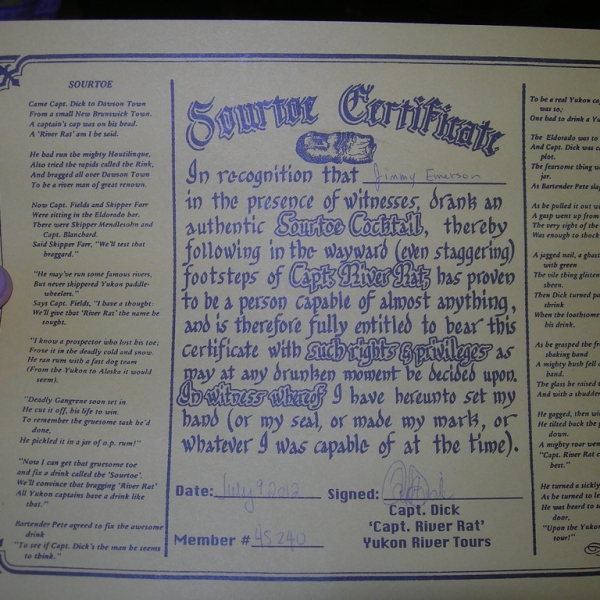 SOURTOE
Came Capt. Dick to Dawson Town
From a small New Brunswick Town.
A captain's cap was on his head.
A 'River Rat' am I he said.
He had run the mighty Houtilinque,
Also tried the rapids called the Rink,
And bragged all over Dawson Town
To be a river man of great renown.
Now Capt. Fields and Skipper Farr
Were sitting in the Eldorado bar.
There were Skipper Mendlesohn and
Capt. Blanchard.
Said Skipper Farr, "We'll test that
braggard."
"He may've run some famous rivers,
But never skippered Yukon paddle-
wheelers."
Says Capt. Fields, "I have a thought:
We'll give that 'River Rat' the name he
sought.
"I know a prospector who lost his toe;
Froze it in the deadly cold and snow.
He ran with a fast dog team
(From the Yukon to Alaska it would
seem).
"Deadly Gangrene soon set in
He cut it off, his life to win.
To remember the gruesome task he'd
done,
He pickled it in a jar of o.p. rum!"
"Now I can get that gruesome toe
and fix a drink called the 'Sourtoe'.
We'll convince that bragging 'River Rat'
All Yukon captains have a drink like
that."
Bartender Pete agreed to fix the awesome
drink
"To see if Capt. Dick's the man he seems
to think."
Sourtoe Certificate
In recognition that Jimmy Emerson
in the presence of witnesses, drank an
authentic Sourtoe Cocktail, thereby
following in the wayward (even staggering)
footsteps of Capt. River Rat, has proven
to be a person capable of almost anything,
and is therefore fully entitled to bear this
certificate with such rights & privileges as
may at any drunken moment be decided upon.
In witness whereof I have hereunto set my
hand (or my seal, or made my mark, or
whatever I was capable of at the time).
Date: July 9 2012 Signed:
Capt. Dick
'Capt. River Rat'
Member # 45240 Yukon River Tours
To be a real Yukon cap
was so;
One had to drink a Yu
The Eldorado was to
And Capt. Dick was c
plot.
The fearsome thing w
jar.
As Bartender Pete slap
As he pulled it out w
A gasp went up from
The very sight of the
Was enough to shock
A jagged nail, a ghast
with green
The vile thing glitten
sheen.
Then Dick turned pa
shrink
When the loathsome
his drink.
As he grasped the fr
shaking hand
A mighty hush fell
band.
The glass he raised t
And with a shudder
He gagged, then wi
He tilted back the g
down.
A mighty roar went
"Capt. River Rat c
best."
He turned a sickly
As he turned to le
He was heard to s
door,
"Upon the Yukon
tour!"